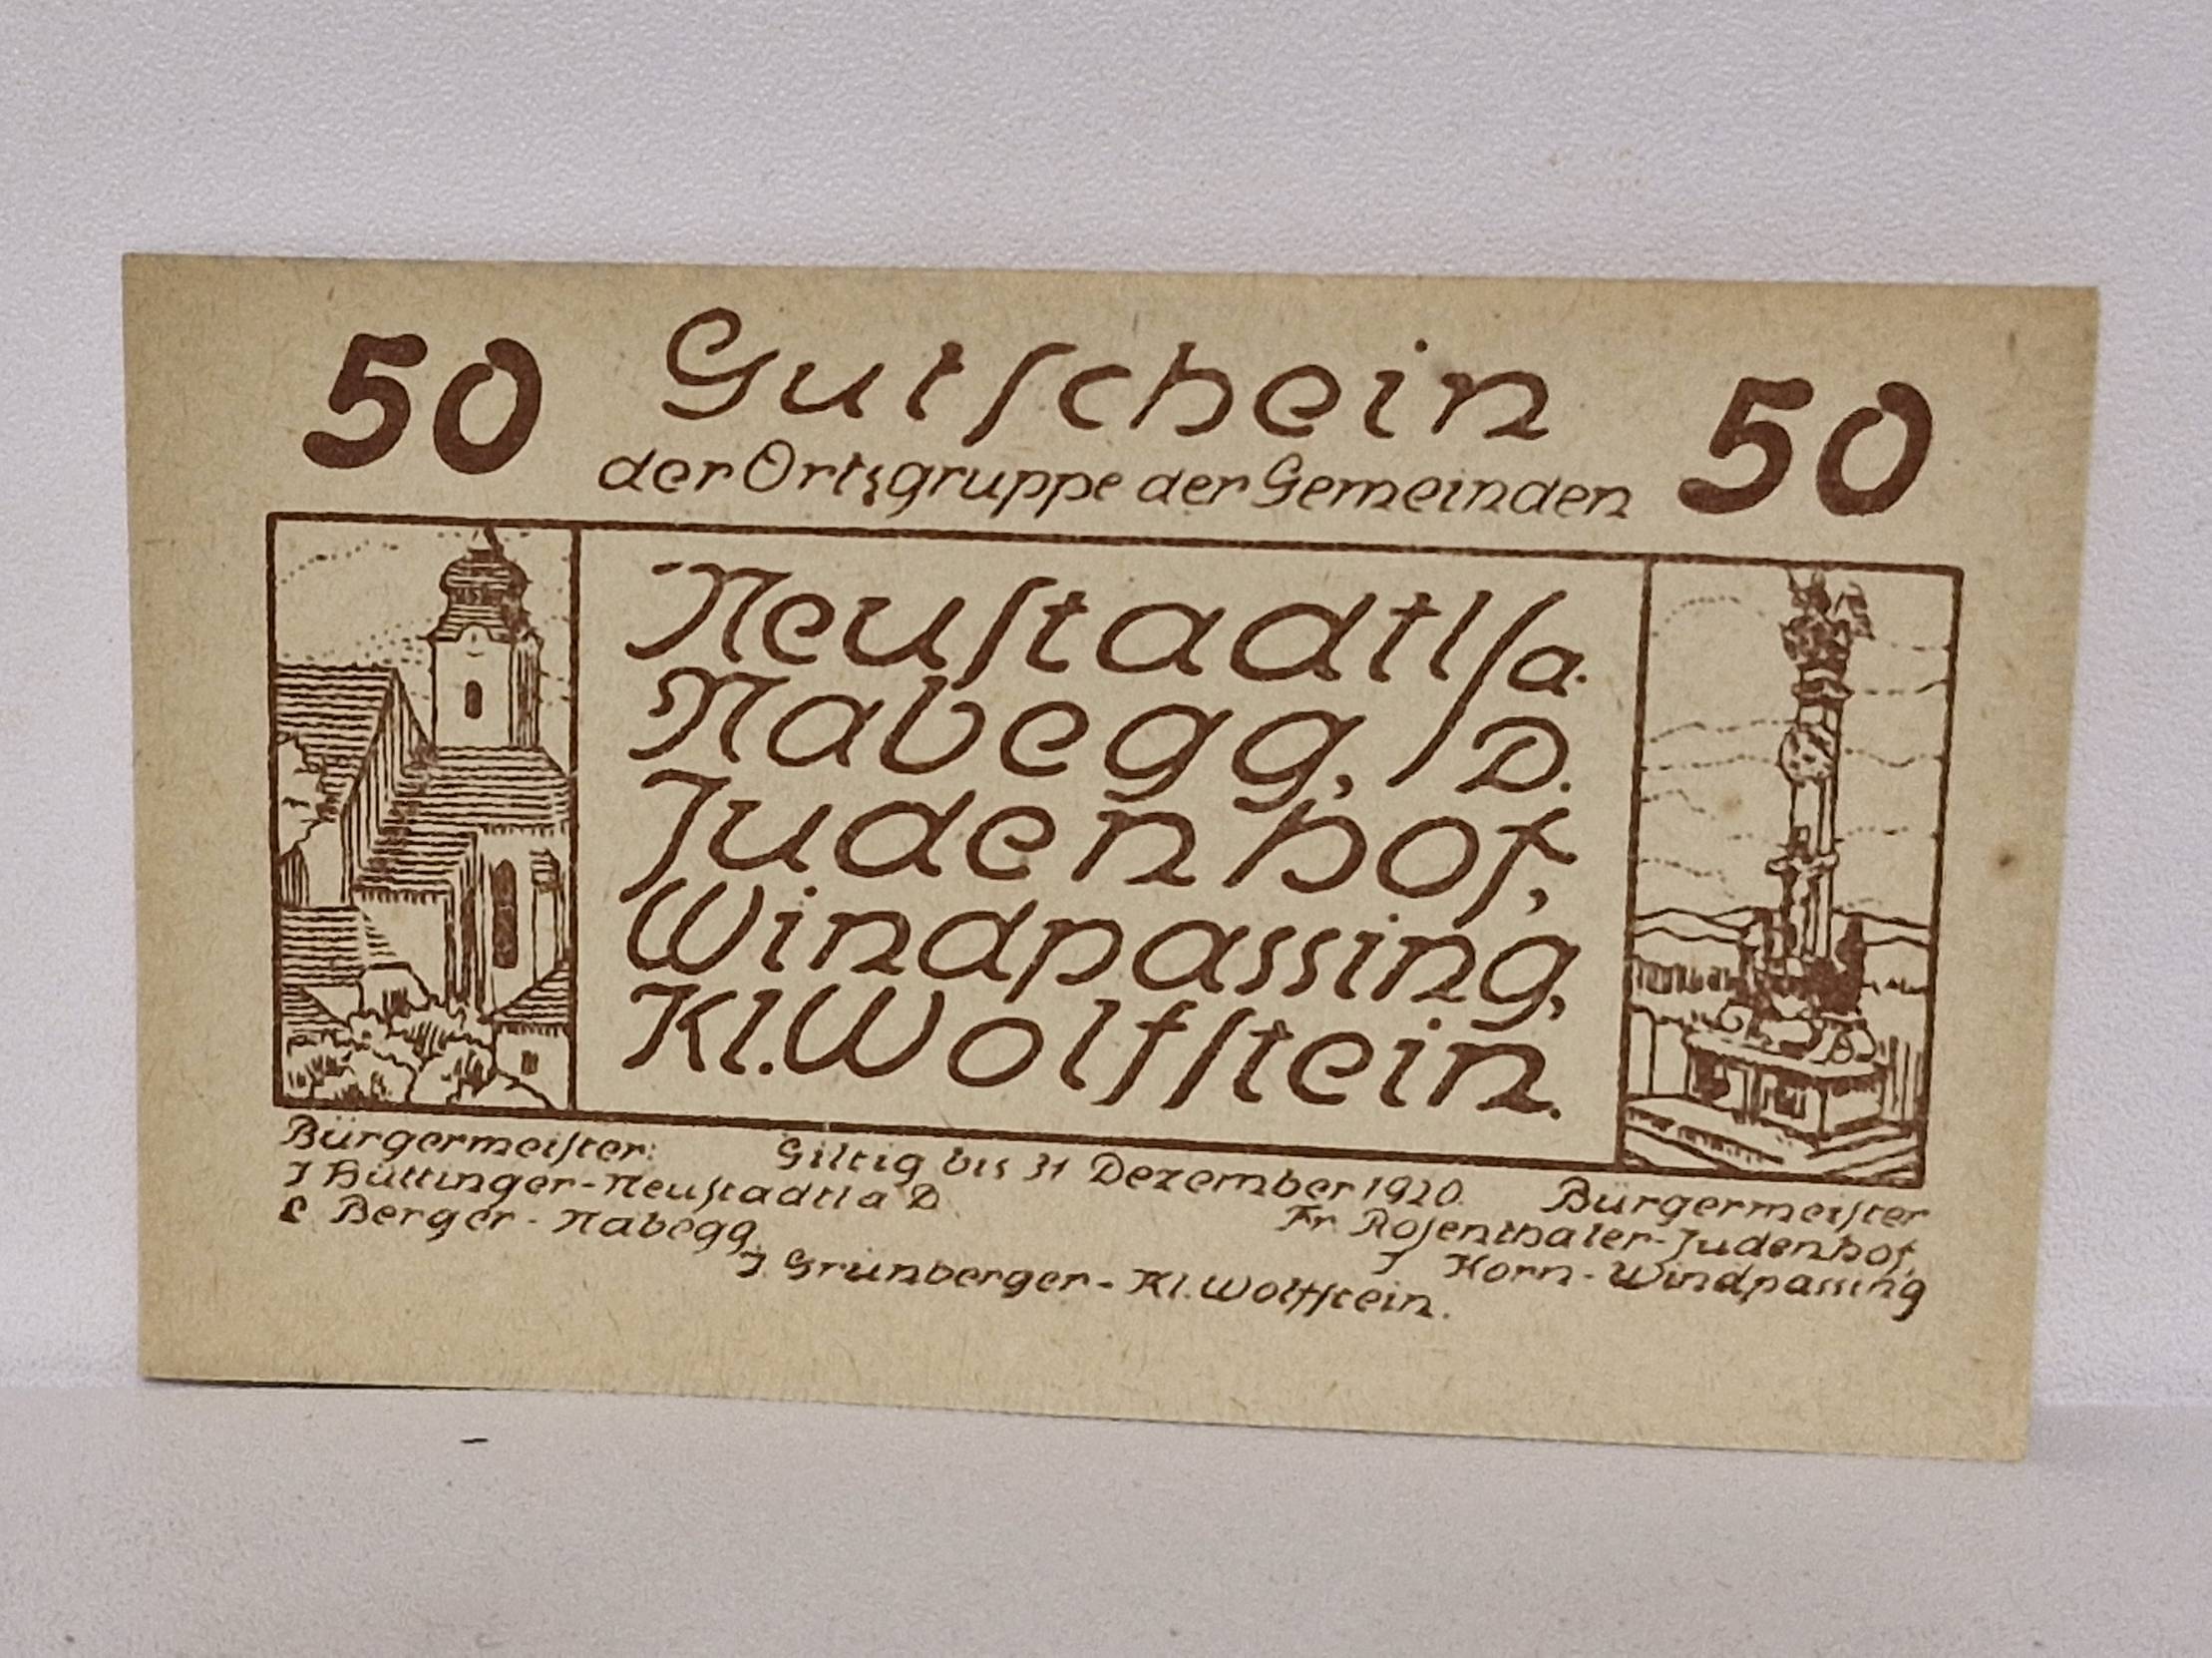 50 Gutschein 50
der Ortsgruppe der Gemeinden
Neustadtl/a.
Nabegg, D.
Judenhof,
Windpassing,
Kl.Wolfstein.
Bürgermeister: Giltig bis 31 Dezember 1920. Bürgermeister
J Hüttinger-Neustadtl a D Fr Rosenthaler-Judenhof,
L Berger-Nabegg J Horn-Windpassing
J. Grünberger-Kl.Wolfstein.